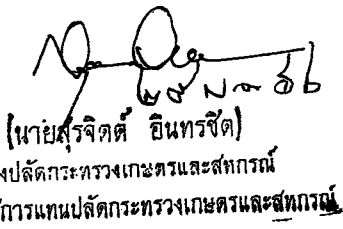 (นายสุรจิตต์ อินทรชิต)
งปลัดกระทรวงเกษตรและสหกรณ์
การแทนปลัดกระทรวงเกษตรและสหกรณ์